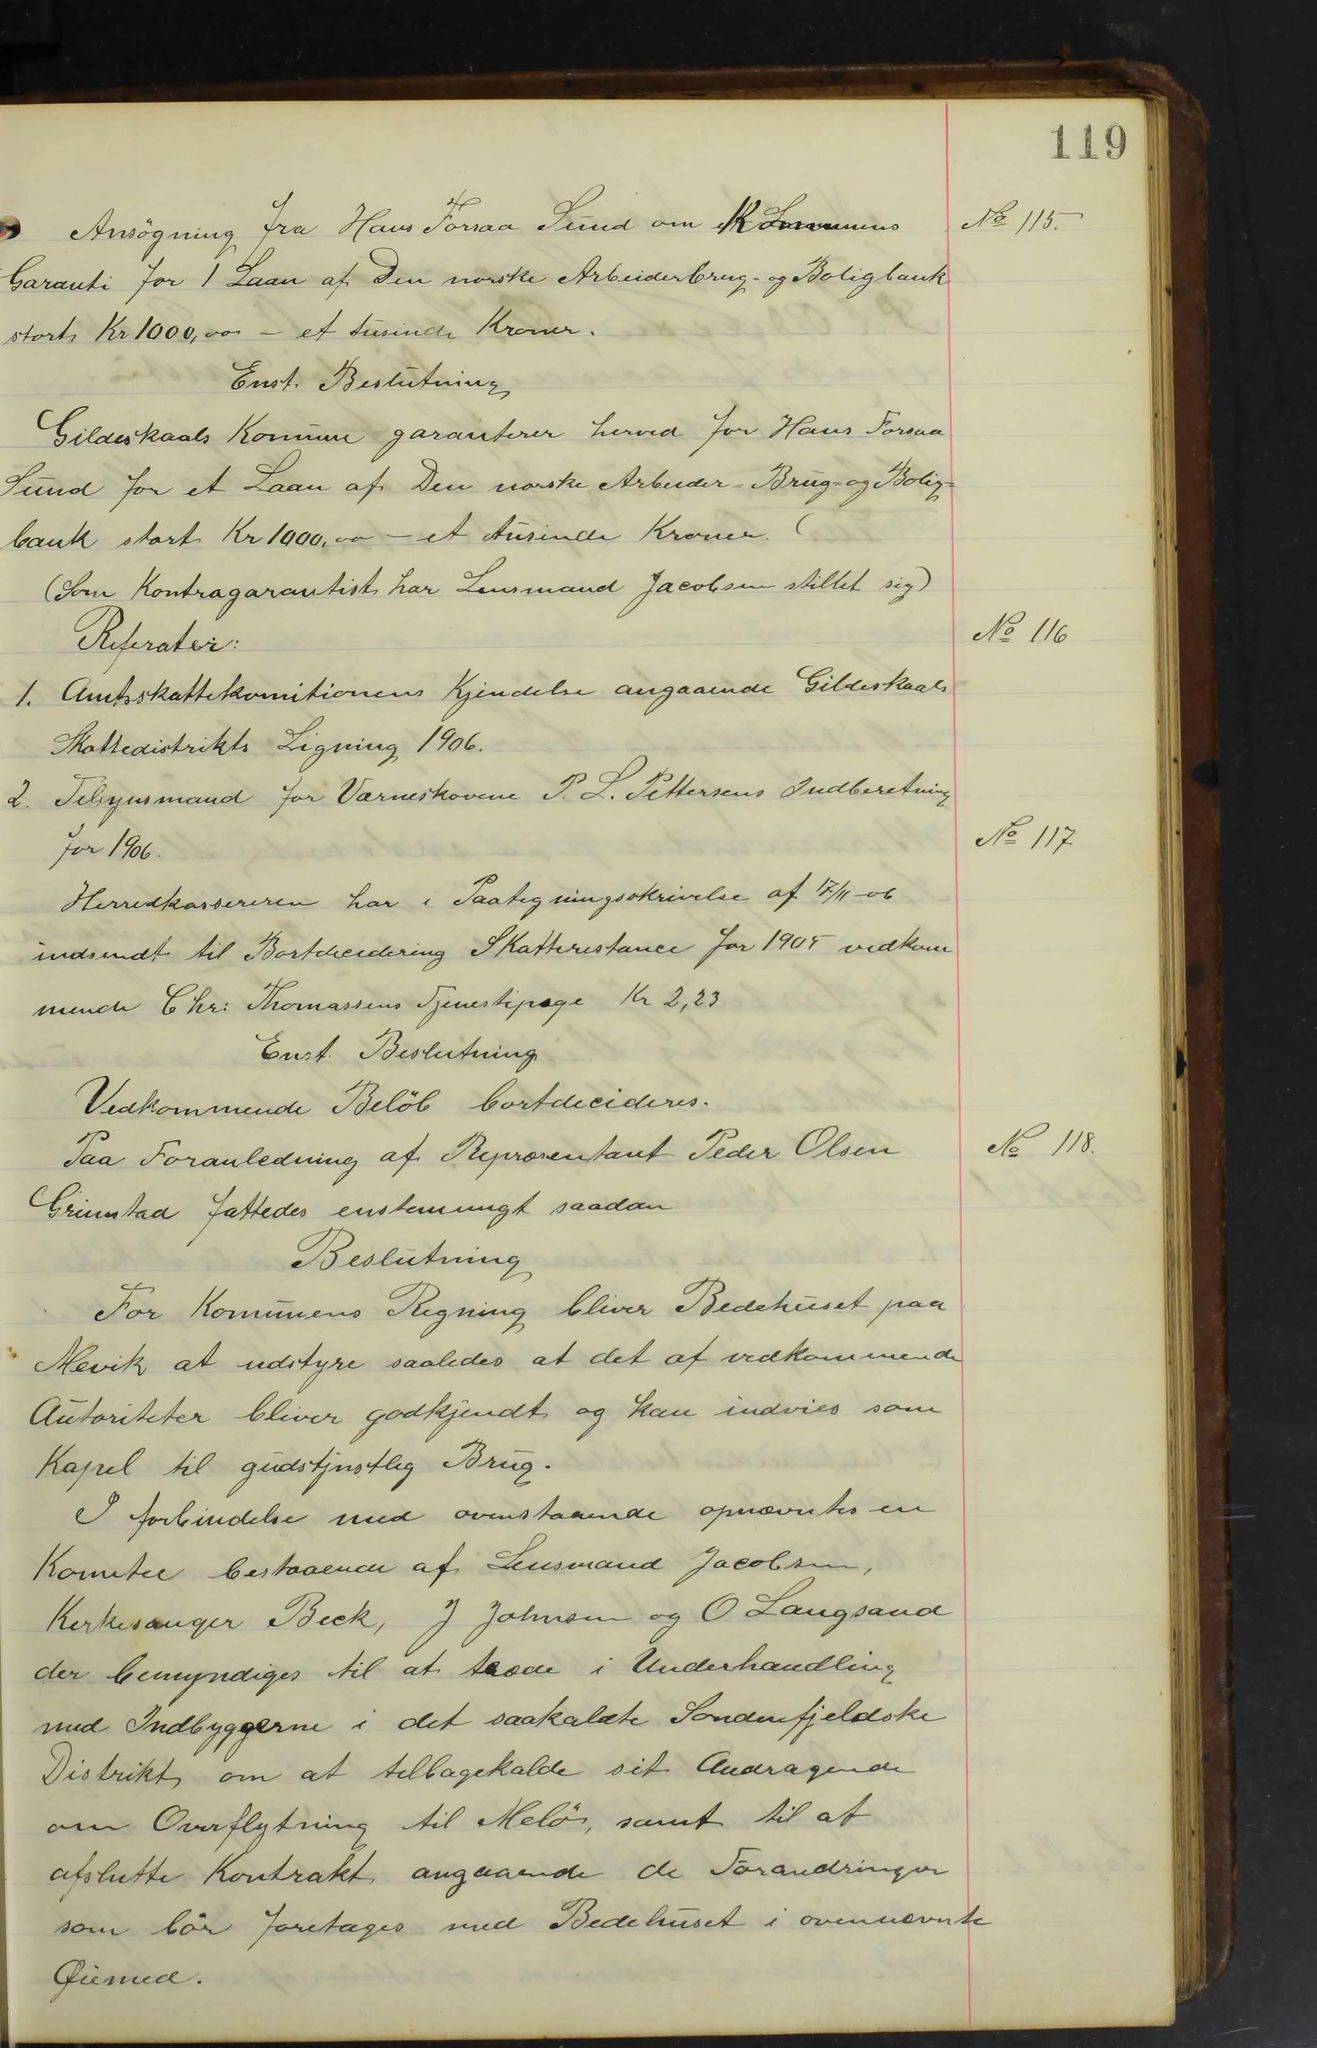 119
Ansögning fra Hans Forsaa Sund om Kommunens No 115.
Garanti for 1 Laan af Den norske Arbeiderbrug- og Boligbank
stort Kr 1000,00 - et tusinde Kroner.
Enst. Beslutning
Gildeskaals Komune garanterer herved for Hans Forsaa
Sund for et Laan af Den norske Arbeider-Brug- og Bolig-
bank stort Kr 1000,00 - et tusinde Kroner. (
(Som Kontragarantist har Lensmand Jacobsen stillet sig)
Referater: No 116
1. Amtsskattekomitionens Kjendelse angaaende Gildeskaals
Skattedistrikts Ligning 1906.
2. Tilsynsmand for Værneskovene P. L. Pettersens Indberetning
for 1906. No 117
Herredkassereren har i Paategningsskrivelse af 17/11-06
indsendt til Bortdecidering Skatterestance for 1905 vedkom
mende Chr: Thomassens Tjenestepige Kr 2,23
Enst. Beslutning
Vedkommende Belöb bortdecideres.
Paa Foranledning af Repræsentant Peder Olsen No 118.
Grimstad fattedes enstemmigt saadan
Beslutning
For Komunens Regning bliver Bedehuset paa
Mevik at udstyre saaledes at det af vedkommende
Autoriteter bliver godkjendt og kan indvies som
Kapel til gudstjnstlig Brug.
I forbindelse med ovenstaaende opnævntes en
Komitee bestaaende af Lensmand Jacobsen,
Kirkesanger Beck, J Johnsen og O Langsand
der bemyndiges til at træde i Underhandling
med Indbyggerne i det saakaldte Söndenfjeldske
Distrikt om at tilbagekalde sit Andragende
om Overflytning til Melö, samt til at
afslutte Kontrakt angaaende de Forandringer
som bör foretages med Bedehuset i ovennævnte
Øiemed.